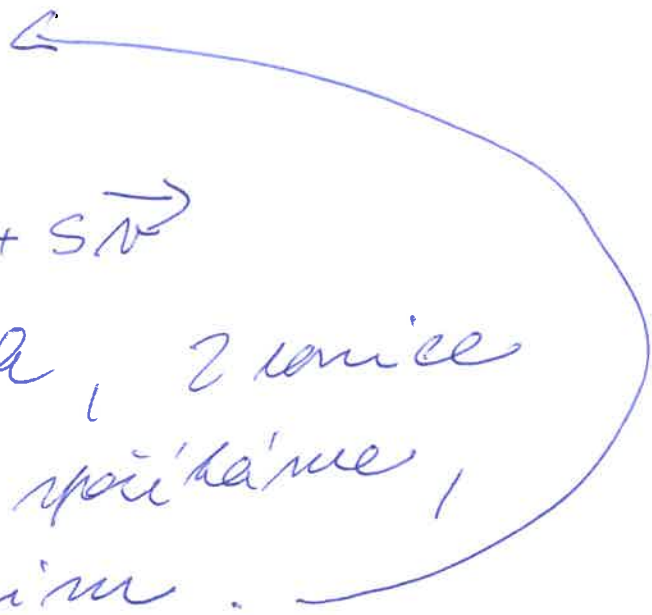 + s\vec{v}
a, z rovnice
spočítáme,
ím.